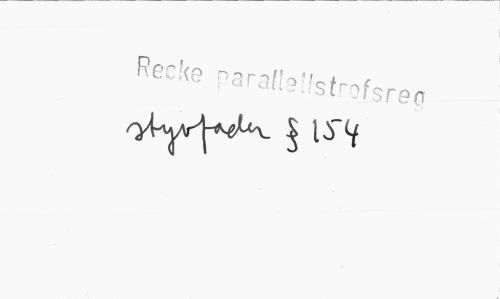 Recke parallellstrofsreg
styvfader § 154